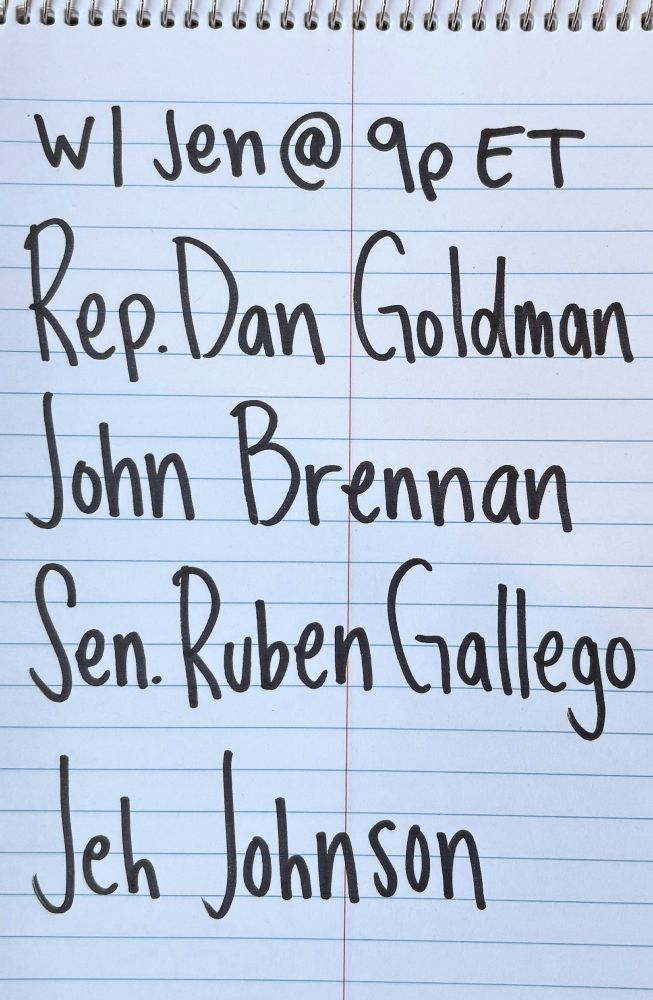 W/ Jen @ 9p ET
Rep. Dan Goldman
John Brennan
Sen. Ruben Gallego
Jeh Johnson